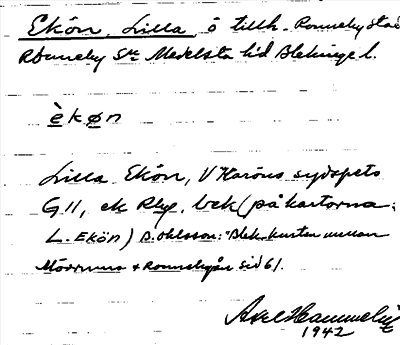 Ekön, Lilla, ö tillh. Ronneby stad
Ronneby Sn Medelsta hd Blekinge l.
è k ø n
Lilla Ekön, V Karöns sydspets
G 11, ek Rby, bek (på kartorna:
L. Ekön) B. Ohlsson: "Blek. kusten mellan
Mörrums & Ronnebyån sid 61.
Axel Hammelin
1942